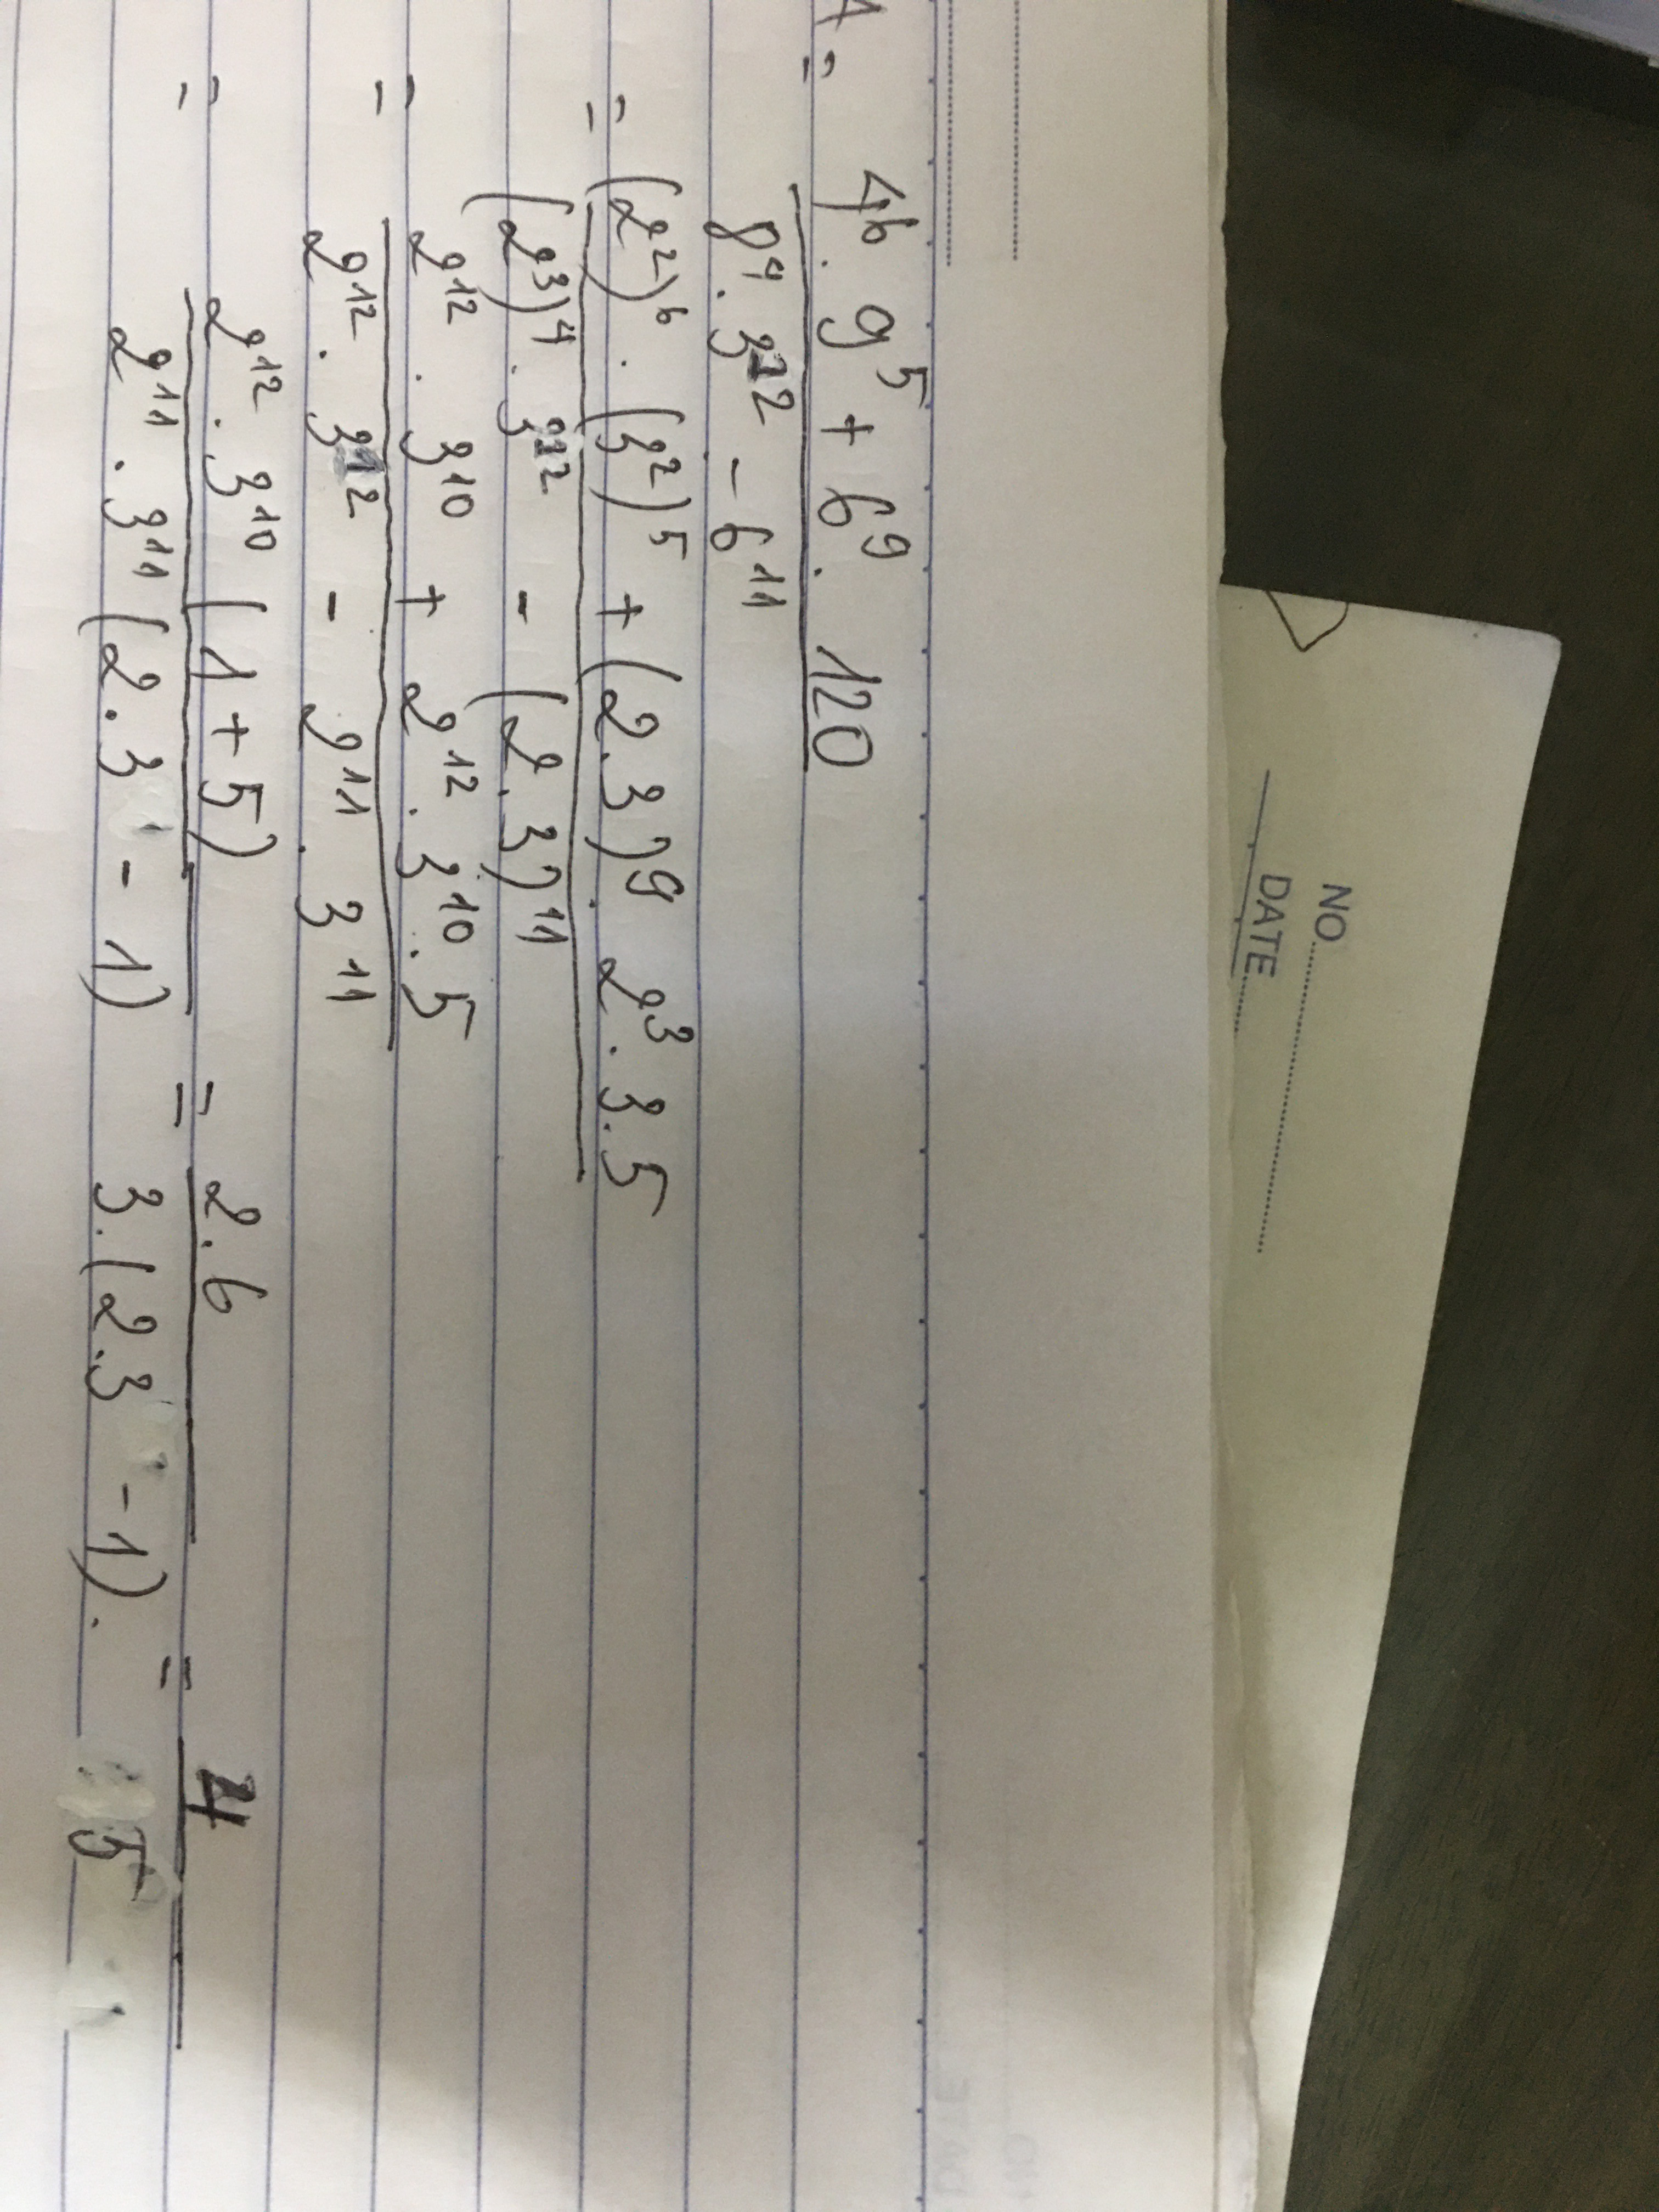 NO.
DATE
A = \frac{4^6 . 9^5 + 6^9 . 120}{8^4 . 3^{12} - 6^{11}}
= \frac{(2^2)^6 . (3^2)^5 + (2.3)^9 . 2^3 . 3 . 5}{(2^3)^4 . 3^{12} - (2.3)^{11}}
= \frac{2^{12} . 3^{10} + 2^{12} . 3^{10} . 5}{2^{12} . 3^{12} - 2^{11} . 3^{11}}
= \frac{2^{12} . 3^{10} (1 + 5)}{2^{11} . 3^{11} (2.3 - 1)} = \frac{2.6}{3.(2.3 - 1)} . = \frac{4}{5}